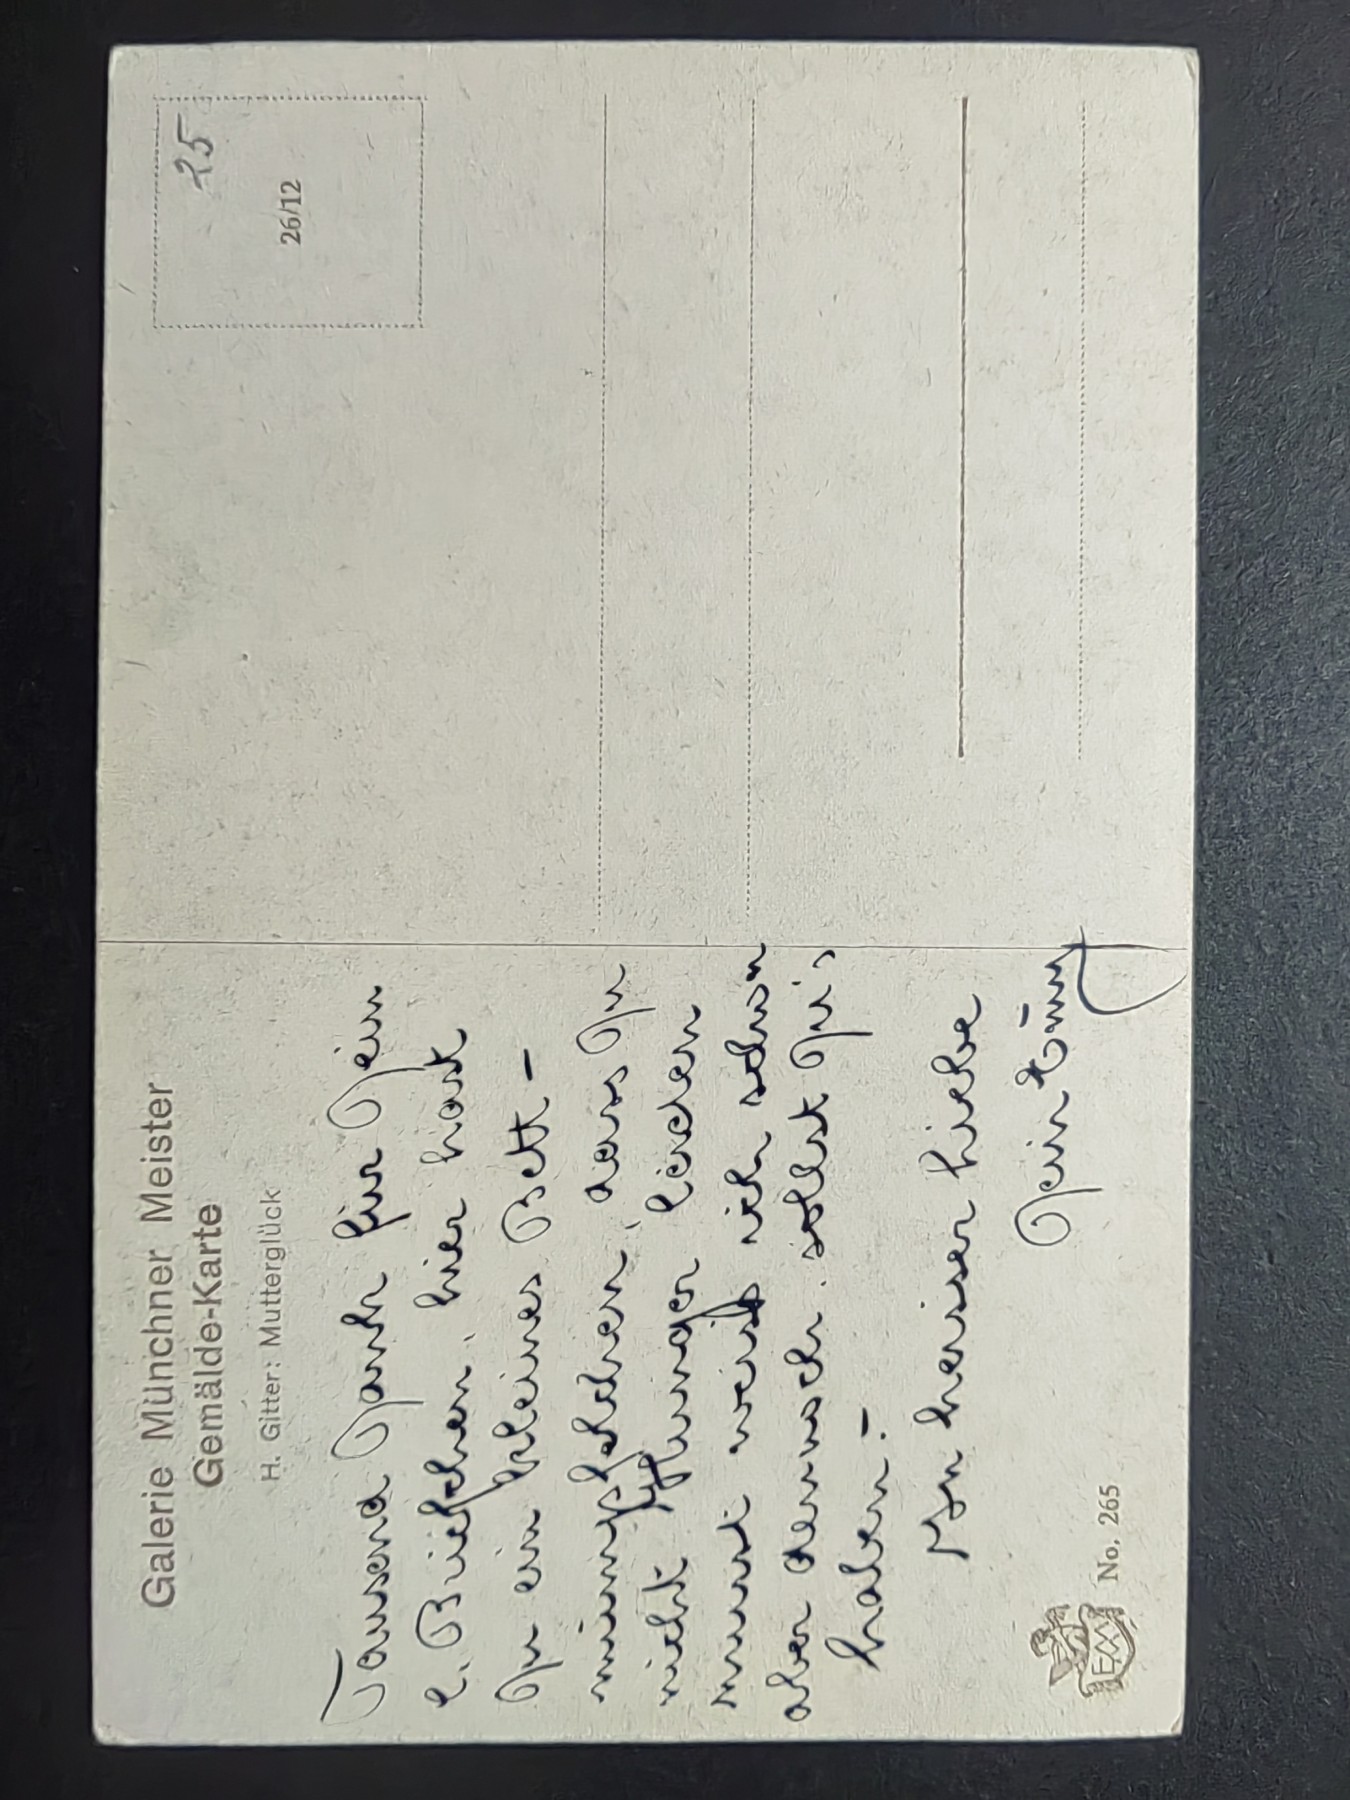 Galerie Münchner Meister
Gemälde-Karte
H. Gitter: Mutterglück
Tausend Dank für Dein
l. Briefchen, hier hast
Du ein kleines Bett -
dass Du
nicht Hunger leiden
musst weiß ich schon
aber dennoch sollst Du's
haben.-
In heisser Liebe
Dein
No. 265
25
26/12